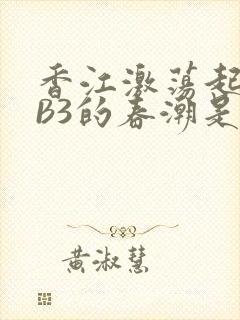 香江激荡起
B3的春潮是
黄淑慧